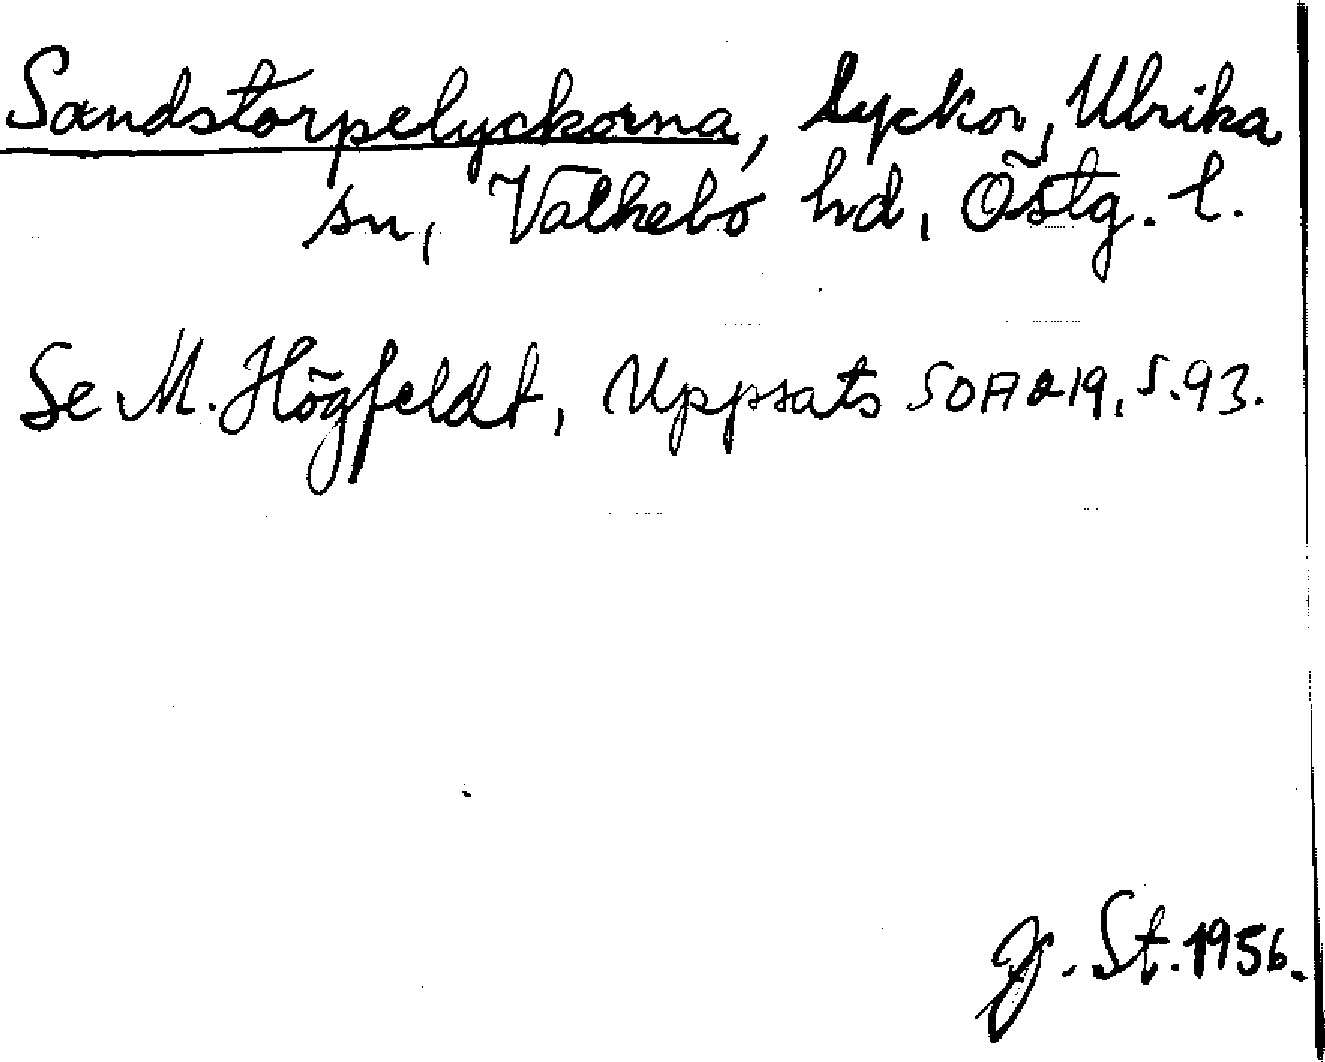 Sandstorpelyckorna, lyckor, Ulrika
sn, Valkebo hd, Östg. l.
Se M. Högfeldt, Uppsats SOA 219, s. 93.
J. St. 1956.